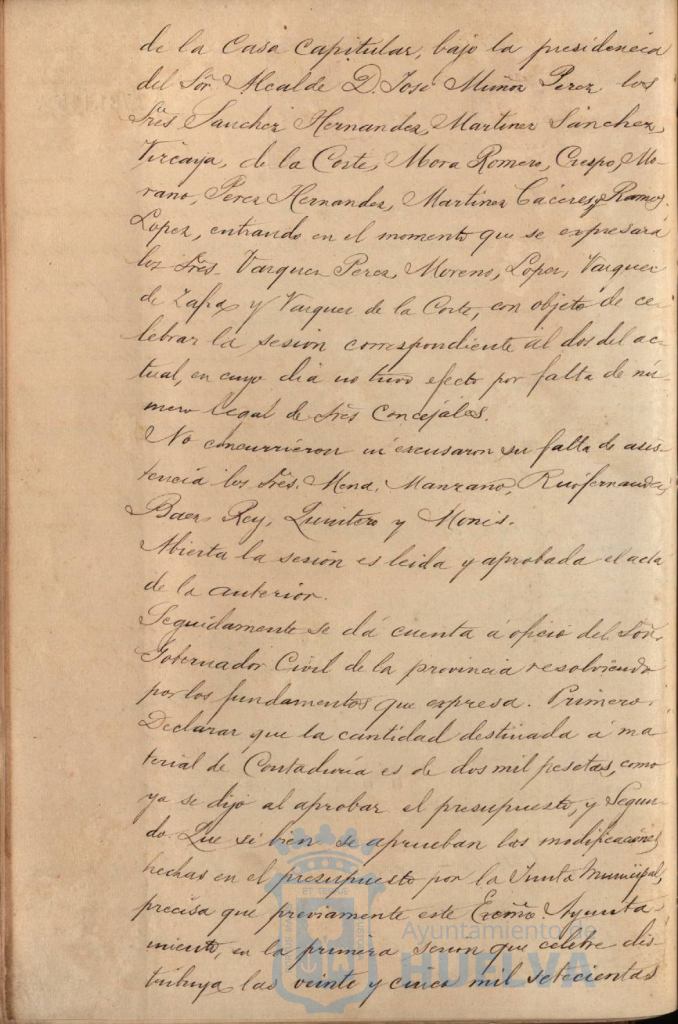 de la Casa Capitular, bajo la presidencia
del Sor. Alcalde D. José Muñoz Perez los
Sres. Sanchez Hernandez, Martinez Sanchez,
Vizcaya, de la Corte, Mora Romero, Crespo, Mo-
rano, Perez Hernandez, Martinez Caceres y Ramos
Lopez, entrando en el momento que se expresará
los Sres. Vazquez Perez, Moreno, Lopez, Vazquez
de Zafra y Vazquez de la Corte, con objeto de ce-
lebrar la sesion correspondiente al dos del ac-
tual, en cuyo dia no tuvo efecto por falta de nú-
mero legal de Sres Concejales.
No concurrieron ni escusaron su falta de asis-
tencia los Sres. Mena, Manzano, Ruifernandez,
Baez, Rey, Quintero y Monis.
Abierta la sesión es leida y aprobada el acta
de la anterior.
Seguidamente se dá cuenta á oficio del Sor.
Gobernador Civil de la provincia resolviendo
por los fundamentos que expresa. Primero.
Declarar que la cantidad destinada á ma-
terial de Contaduría es de dos mil pesetas, como
ya se dijo al aprobar el presupuesto, y Segun-
do. Que si bien se aprueban las modificaciones
hechas en el presupuesto por la Junta Municipal,
precisa que previamente este Excmo. Ayunta-
miento, en la primera sesion que celebre dis-
tribuya las veinte y cinco mil setecientas
Ayuntamiento de
HUELVA